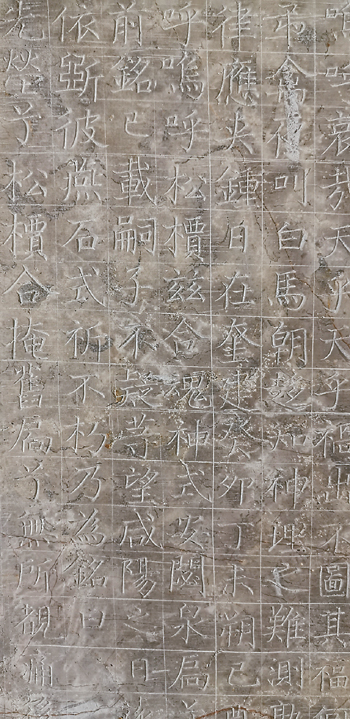 嗚呼哀哉天乎天乎禍出不圖其福
禽夜叫白馬朝趍知神理之難測
律應夾鍾日在奎建癸卯丁未朔己酉
呼嗚呼松檟兹合魂神式安閟泉扃
前銘已載嗣子不歲等望咸陽之日
依斲彼燕石式祈不朽乃為銘曰
塋兮松檟合掩舊扃兮無所覩痛